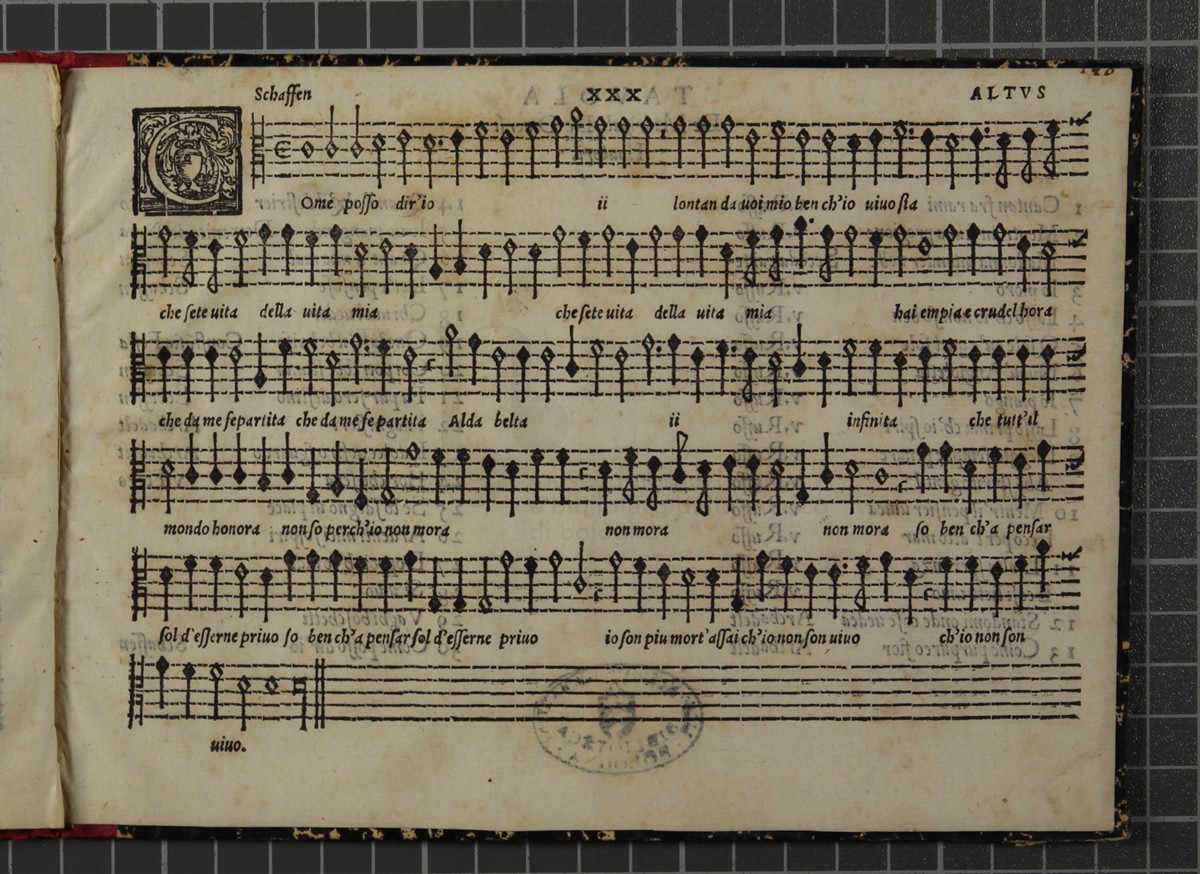 Schaffen XXX ALTVS
COme posso dir'io ii lontan da uoi mio ben ch'io uiuo sia
che sete uita della uita mia che sete uita della uita mia hai empia e crudel hora
che da me separtita che da me se partita Alda belta ii infinita che tutt'il
mondo honora non so perch'io non mora non mora non mora so ben ch'a pensar
sol d'esserne priuo so ben ch'a pensar sol d'esserne priuo io son piu mort'assai ch'io non son uiuo ch'io non son
uiuo.